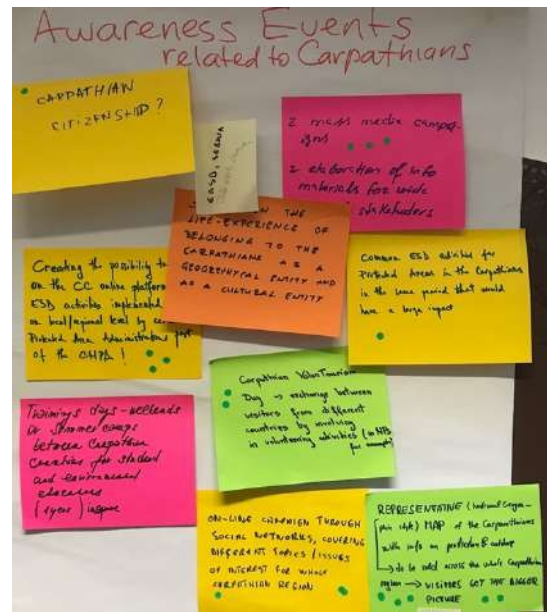 Awareness Events
related to Carpathians
CARPATHIAN
CITIZENSHIP?
2 mass media campai-
igns
2 elaboration of info
materials for wide
stakehoders
EASD, SERBIA
ON THE
LIFE-EXPERIENCE OF
BELONGING TO THE
CARPATHIANS AS A
GEOGPHYICAL ENTITY AND
AS A CULTURAL ENTITY
Creating the possibility to
on the CC online platform
ESD activities implemented
on local/regional level by
Protected Area Administrations part
of the CNPA!
Common ESD activities for
Protected Areas in the Carpathians
in the same period that would
have a large impact
Carpathian VolunTourism
Day → exchange between
visitors from different
countries by involving
in volunteering activities (in NPs
for example)
Trainings days - weekends
or summer camps
between Carpathian
Countries for student
and environment
educators
(1 year) inspire
ON-LINE CAMPAIGN THROUGH
SOCIAL NETWORKS, COVERING
DIFFERENT TOPICS / ISSUES
OF INTEREST FOR WHOLE
CARPATHIAN REGION
REPRESENTATIVE (National Geogra-
phic style) MAP of the Carpathians
with info on protection &
to be used across the whole Carpathian
region → VISITORS GET THE BIGGER
PICTURE